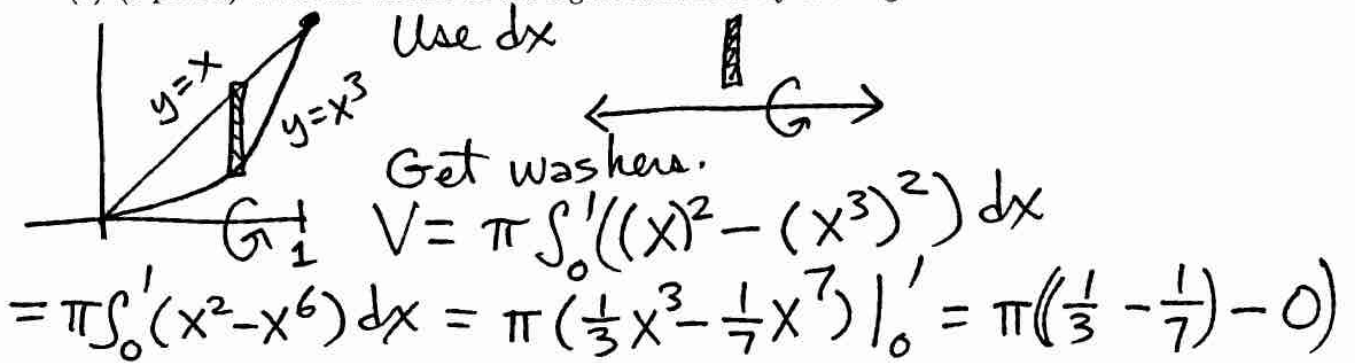 Use dx
y=x
y=x³
1
Get washers.
V = π∫₀¹((x)² − (x³)²) dx
= π∫₀¹(x²−x⁶) dx = π(⅓x³ − 1/7 x⁷)|₀¹ = π((⅓ − 1/7) − 0)